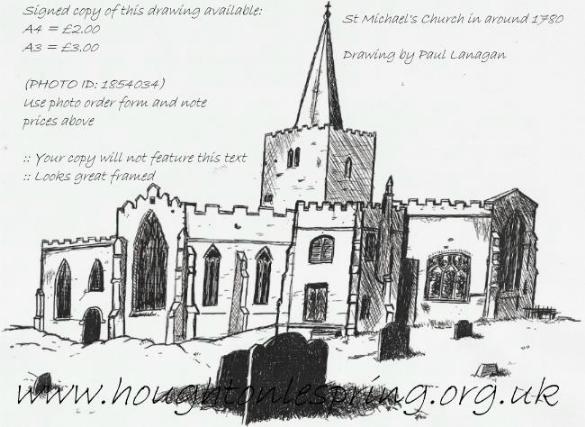 Signed copy of this drawing available:
A4 = £2.00
A3 = £3.00
(PHOTO ID: 1854034)
Use photo order form and note
prices above
:: Your copy will not feature this text
:: Looks great framed
St Michael's Church in around 1780
Drawing by Paul Lanagan
www.houghtonlespring.org.uk